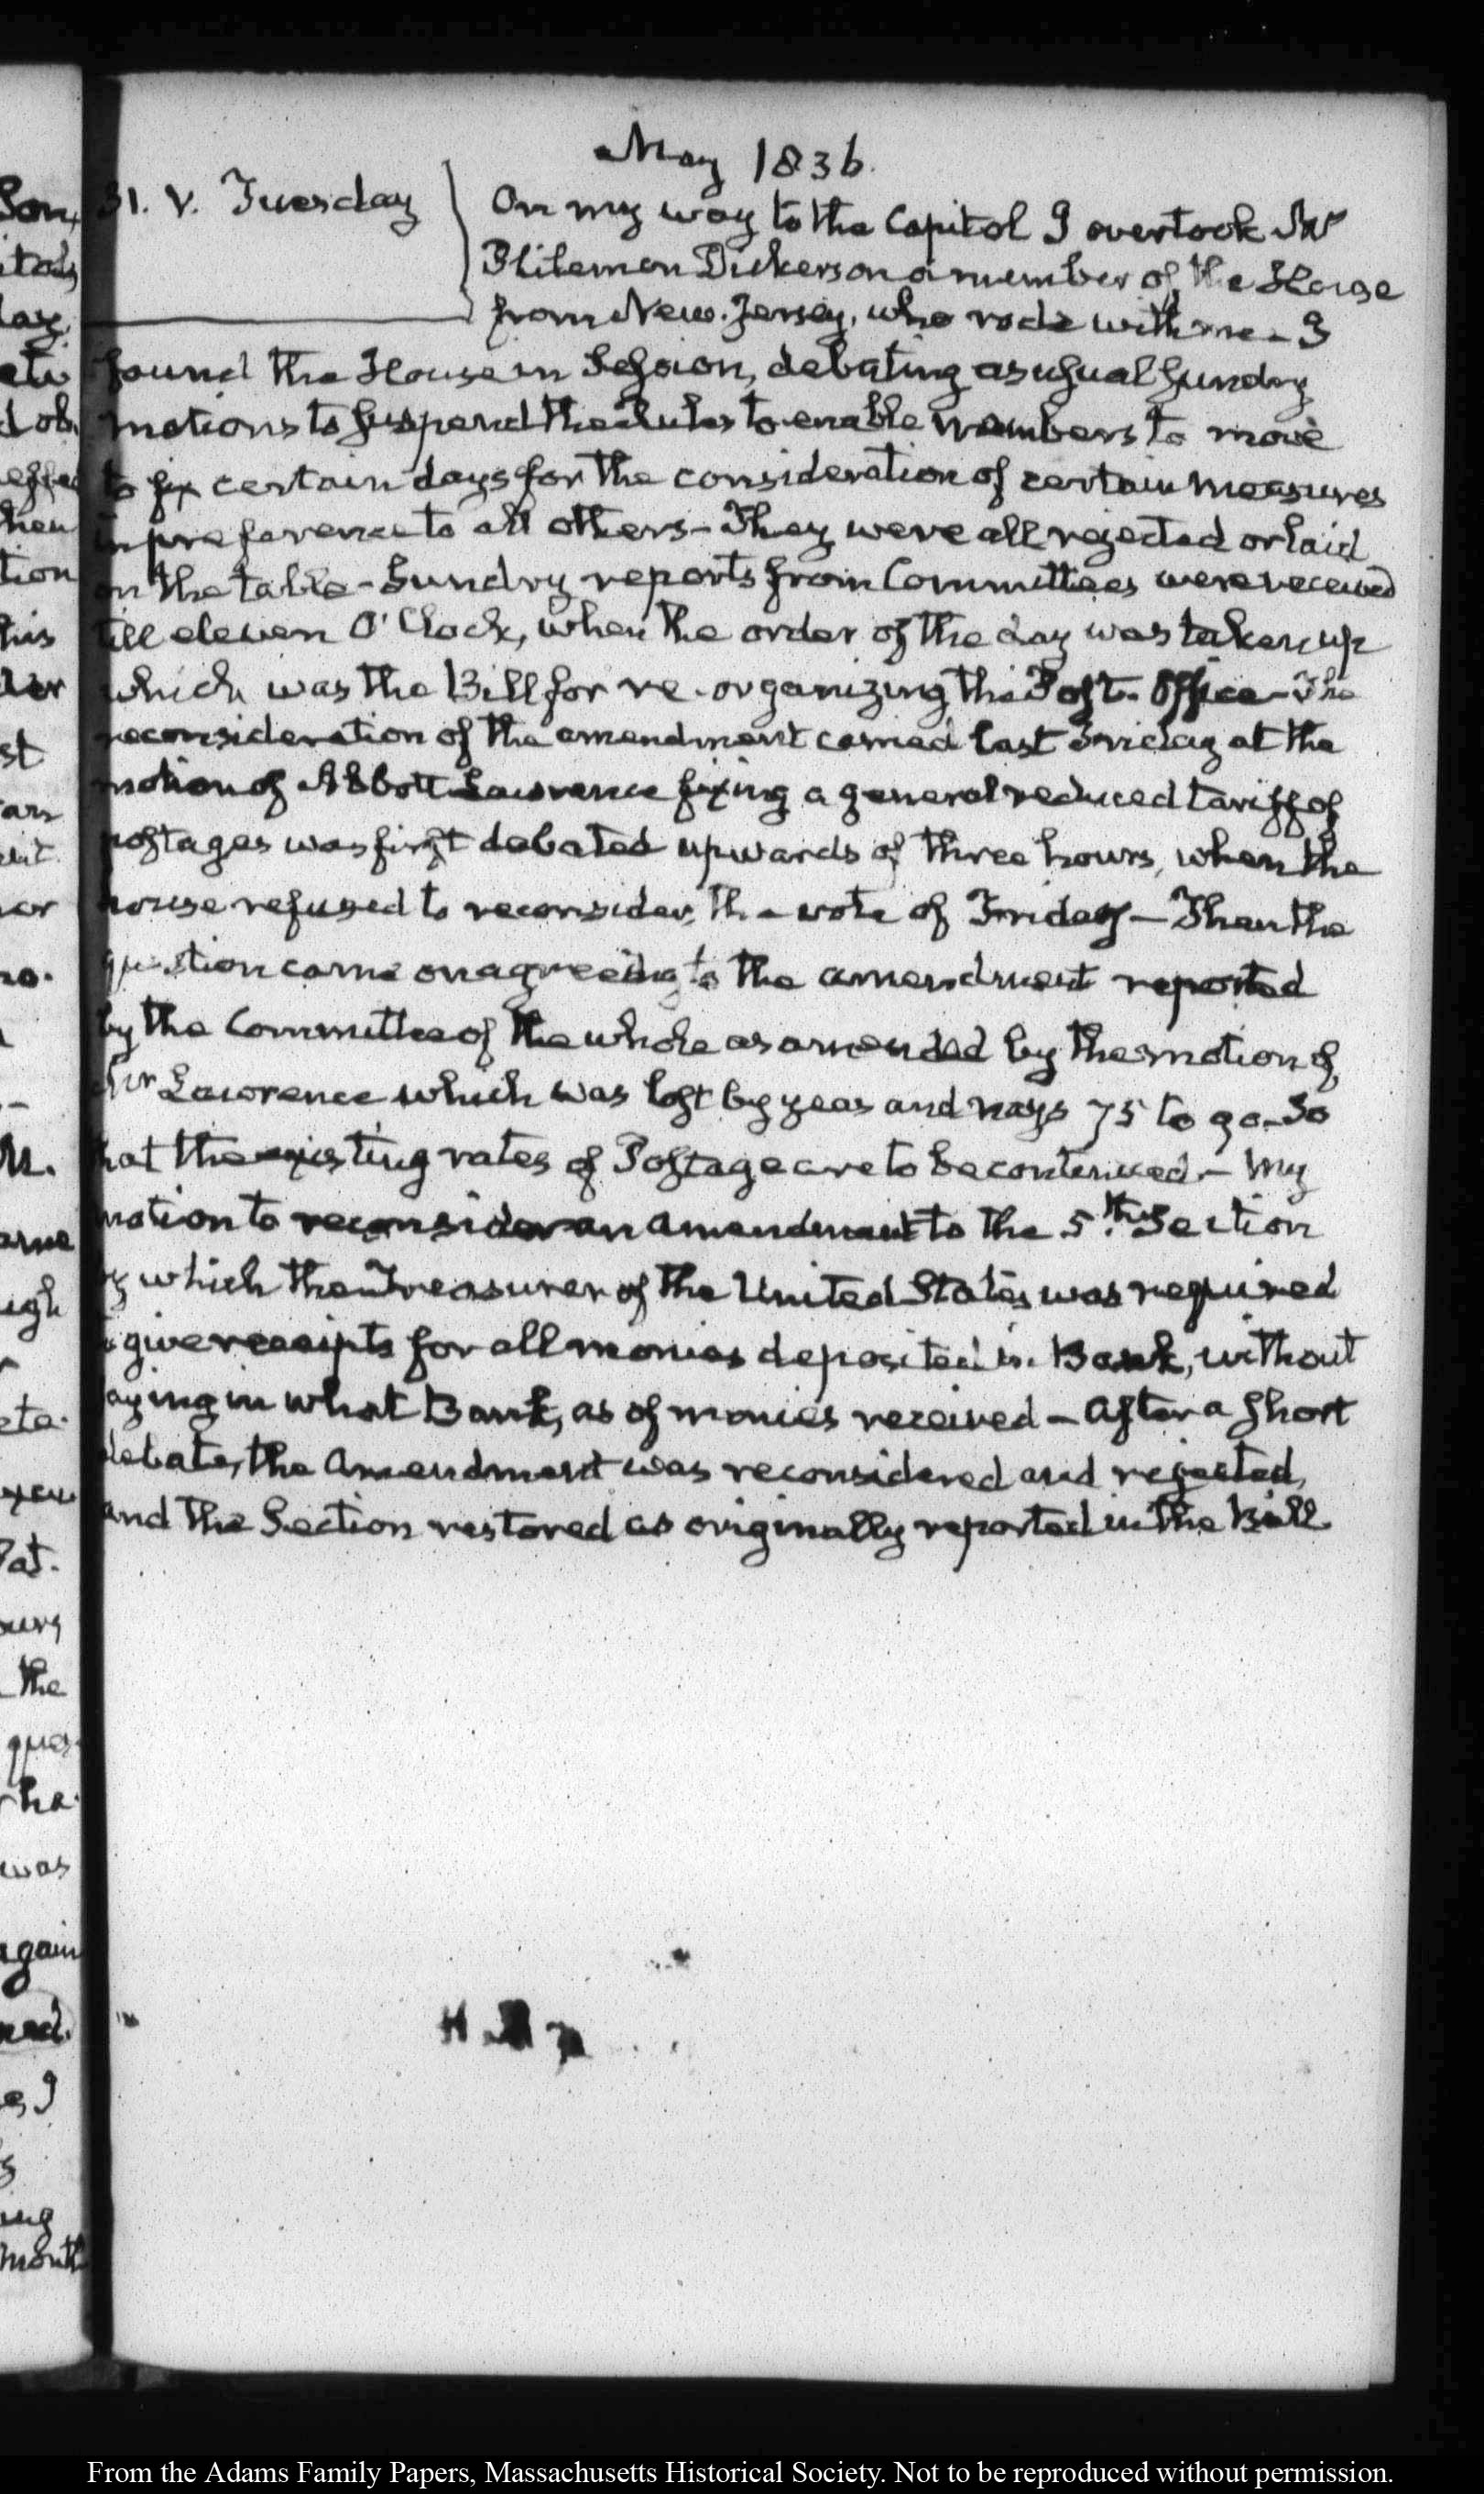 May 1836.
31. V. Tuesday
On my way to the Capitol I overtook Mr
Philemon Dickerson a member of the House
from New-Jersey, who rode with me - I
found the House in Session, debating as usual sundry
motions to suspend the rules to enable members to move
to fix certain days for the consideration of certain measures
in preference to all others - They were all rejected or laid
on the table - Sundry reports from Committees were received
till eleven O'Clock, when the order of the day was taken up
which was the Bill for re-organizing the Post-Office - The
reconsideration of the amendment carried last Friday at the
motion of Abbott Lawrence fixing a general reduced tariff of
postages was first debated upwards of three hours, when the
house refused to reconsider, the vote of Friday - Then the
question came on agreeing to the amendment reported
by the Committee of the whole as amended by the motion of
Mr Lawrence which was lost by yeas and nays 75 to 90. So
that the existing rates of Postage are to be continued - My
motion to reconsider an amendment to the 5th Section
by which the Treasurer of the United States was required
to give receipts for all monies deposited in Bank, without
saying in what Bank, as of monies received - After a short
debate, the Amendment was reconsidered and rejected,
and the Section restored as originally reported in the Bill.
From the Adams Family Papers, Massachusetts Historical Society. Not to be reproduced without permission.